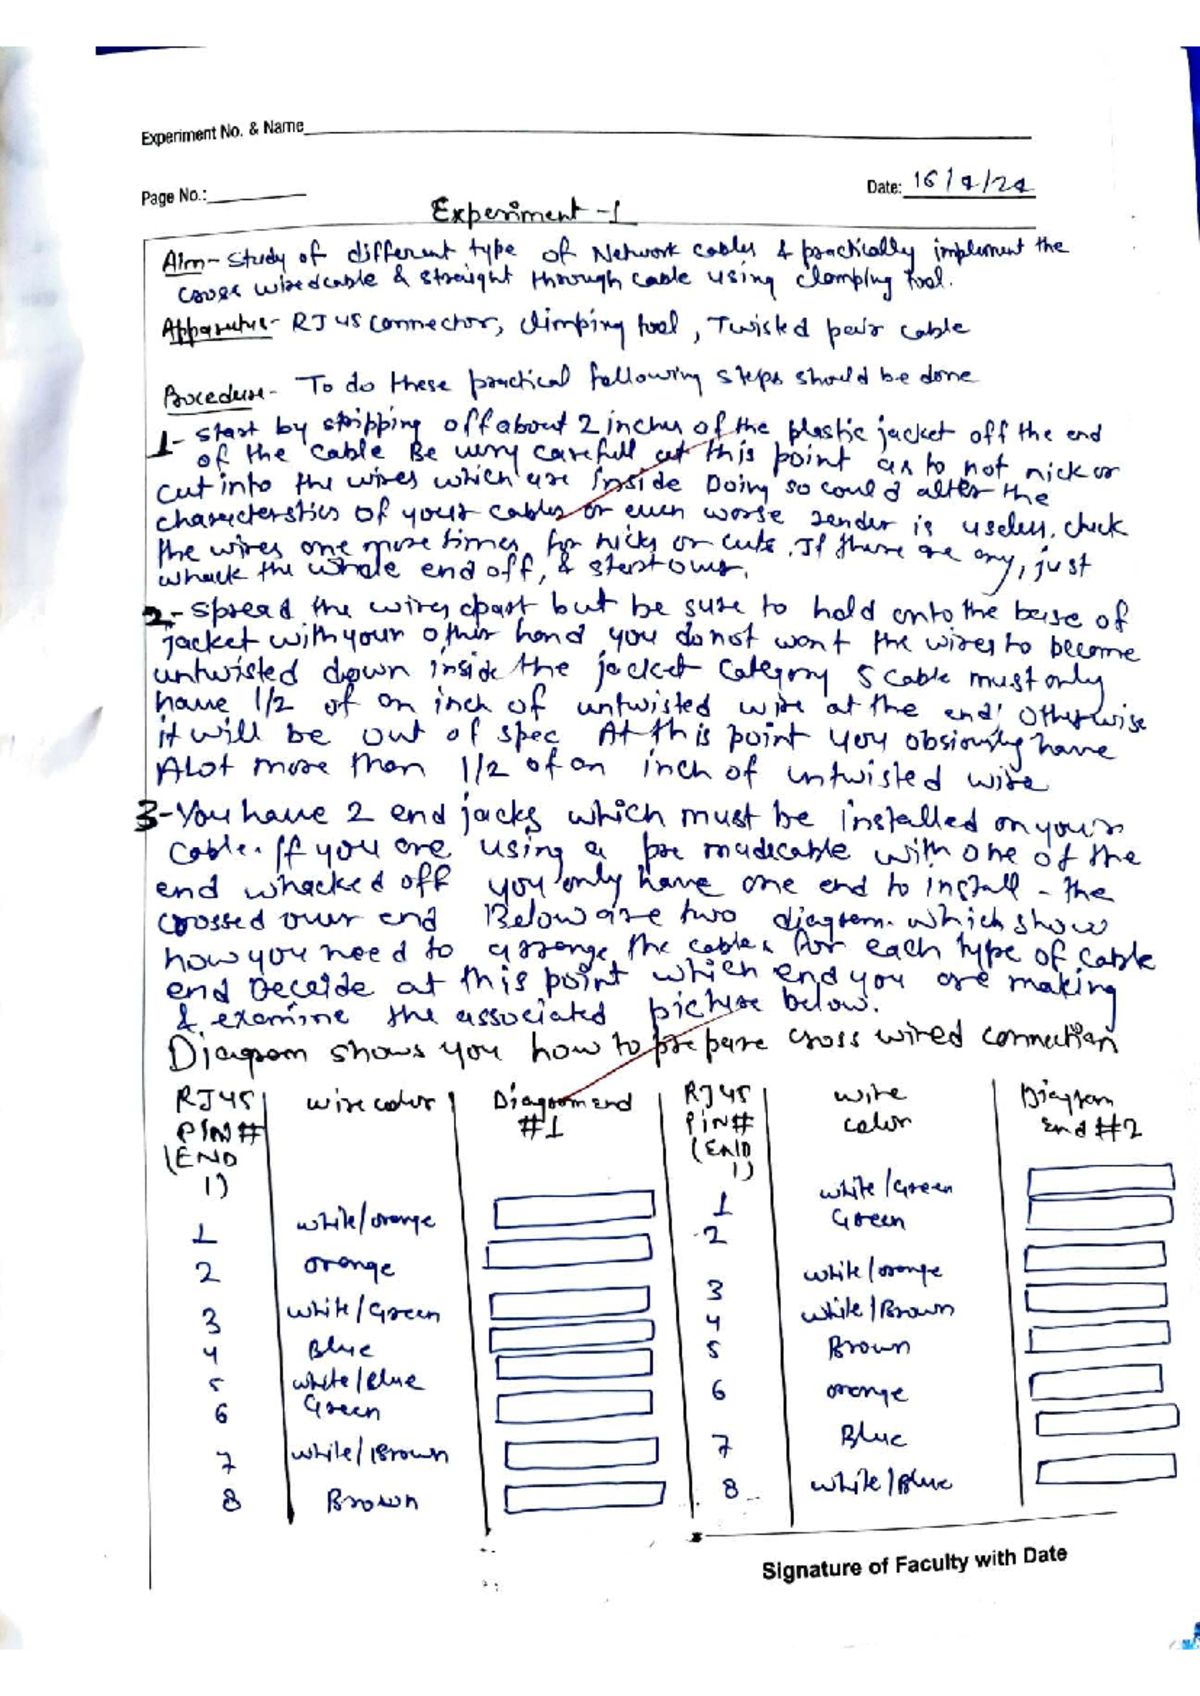 Experiment No. & Name
Page No.:
Date: 16/9/24
Experiment -1
Aim- Study of different type of Network cables & practically implement the
cross wired cable & straight through cable using clamping tool.
Apparatus- RJ45 connector, climping tool, Twisted pair cable
Procedure- To do these practical following steps should be done
1- start by stripping off about 2 inches of the plastic jacket off the end
of the cable Be very carefull at this point as to not nick or
cut into the wires which are inside Doing so could alter the
characterstics of your cables or even worse render is useless. check
the wires one more times for nicks or cuts. If there are any, just
whack the whole end off, & start over.
2- Spread the wires apart but be sure to hold onto the base of
jacket with your other hand you do not want the wires to become
untwisted down inside the jacket Category 5 cable must only
have 1/2 of an inch of untwisted wire at the end; otherwise
it will be out of spec. At this point you obsiously have
Alot more than 1/2 of an inch of untwisted wire
3- You have 2 end jacks which must be installed on your
cable. If you are using a pre made cable with one of the
end whacked off you only have one end to install - the
crossed over end Below are two diagram. which show
how you need to arrange the cables for each type of cable
end Deceide at this point which end you are making
& examine the associated picture below.
Diagram shows you how to prepare cross wired connection
RJ45 PIN# (END 1) wire color Diagram end #1 RJ45 PIN# (END 1) wire color Diagram End #2
1 white/orange 1 white/Green
2 orange 2 Green
3 white/Green 3 white/orange
4 Blue 4 white/Brown
5 white/Blue 5 Brown
6 Green 6 orange
7 white/Brown 7 Blue
8 Brown 8 white/Blue
Signature of Faculty with Date